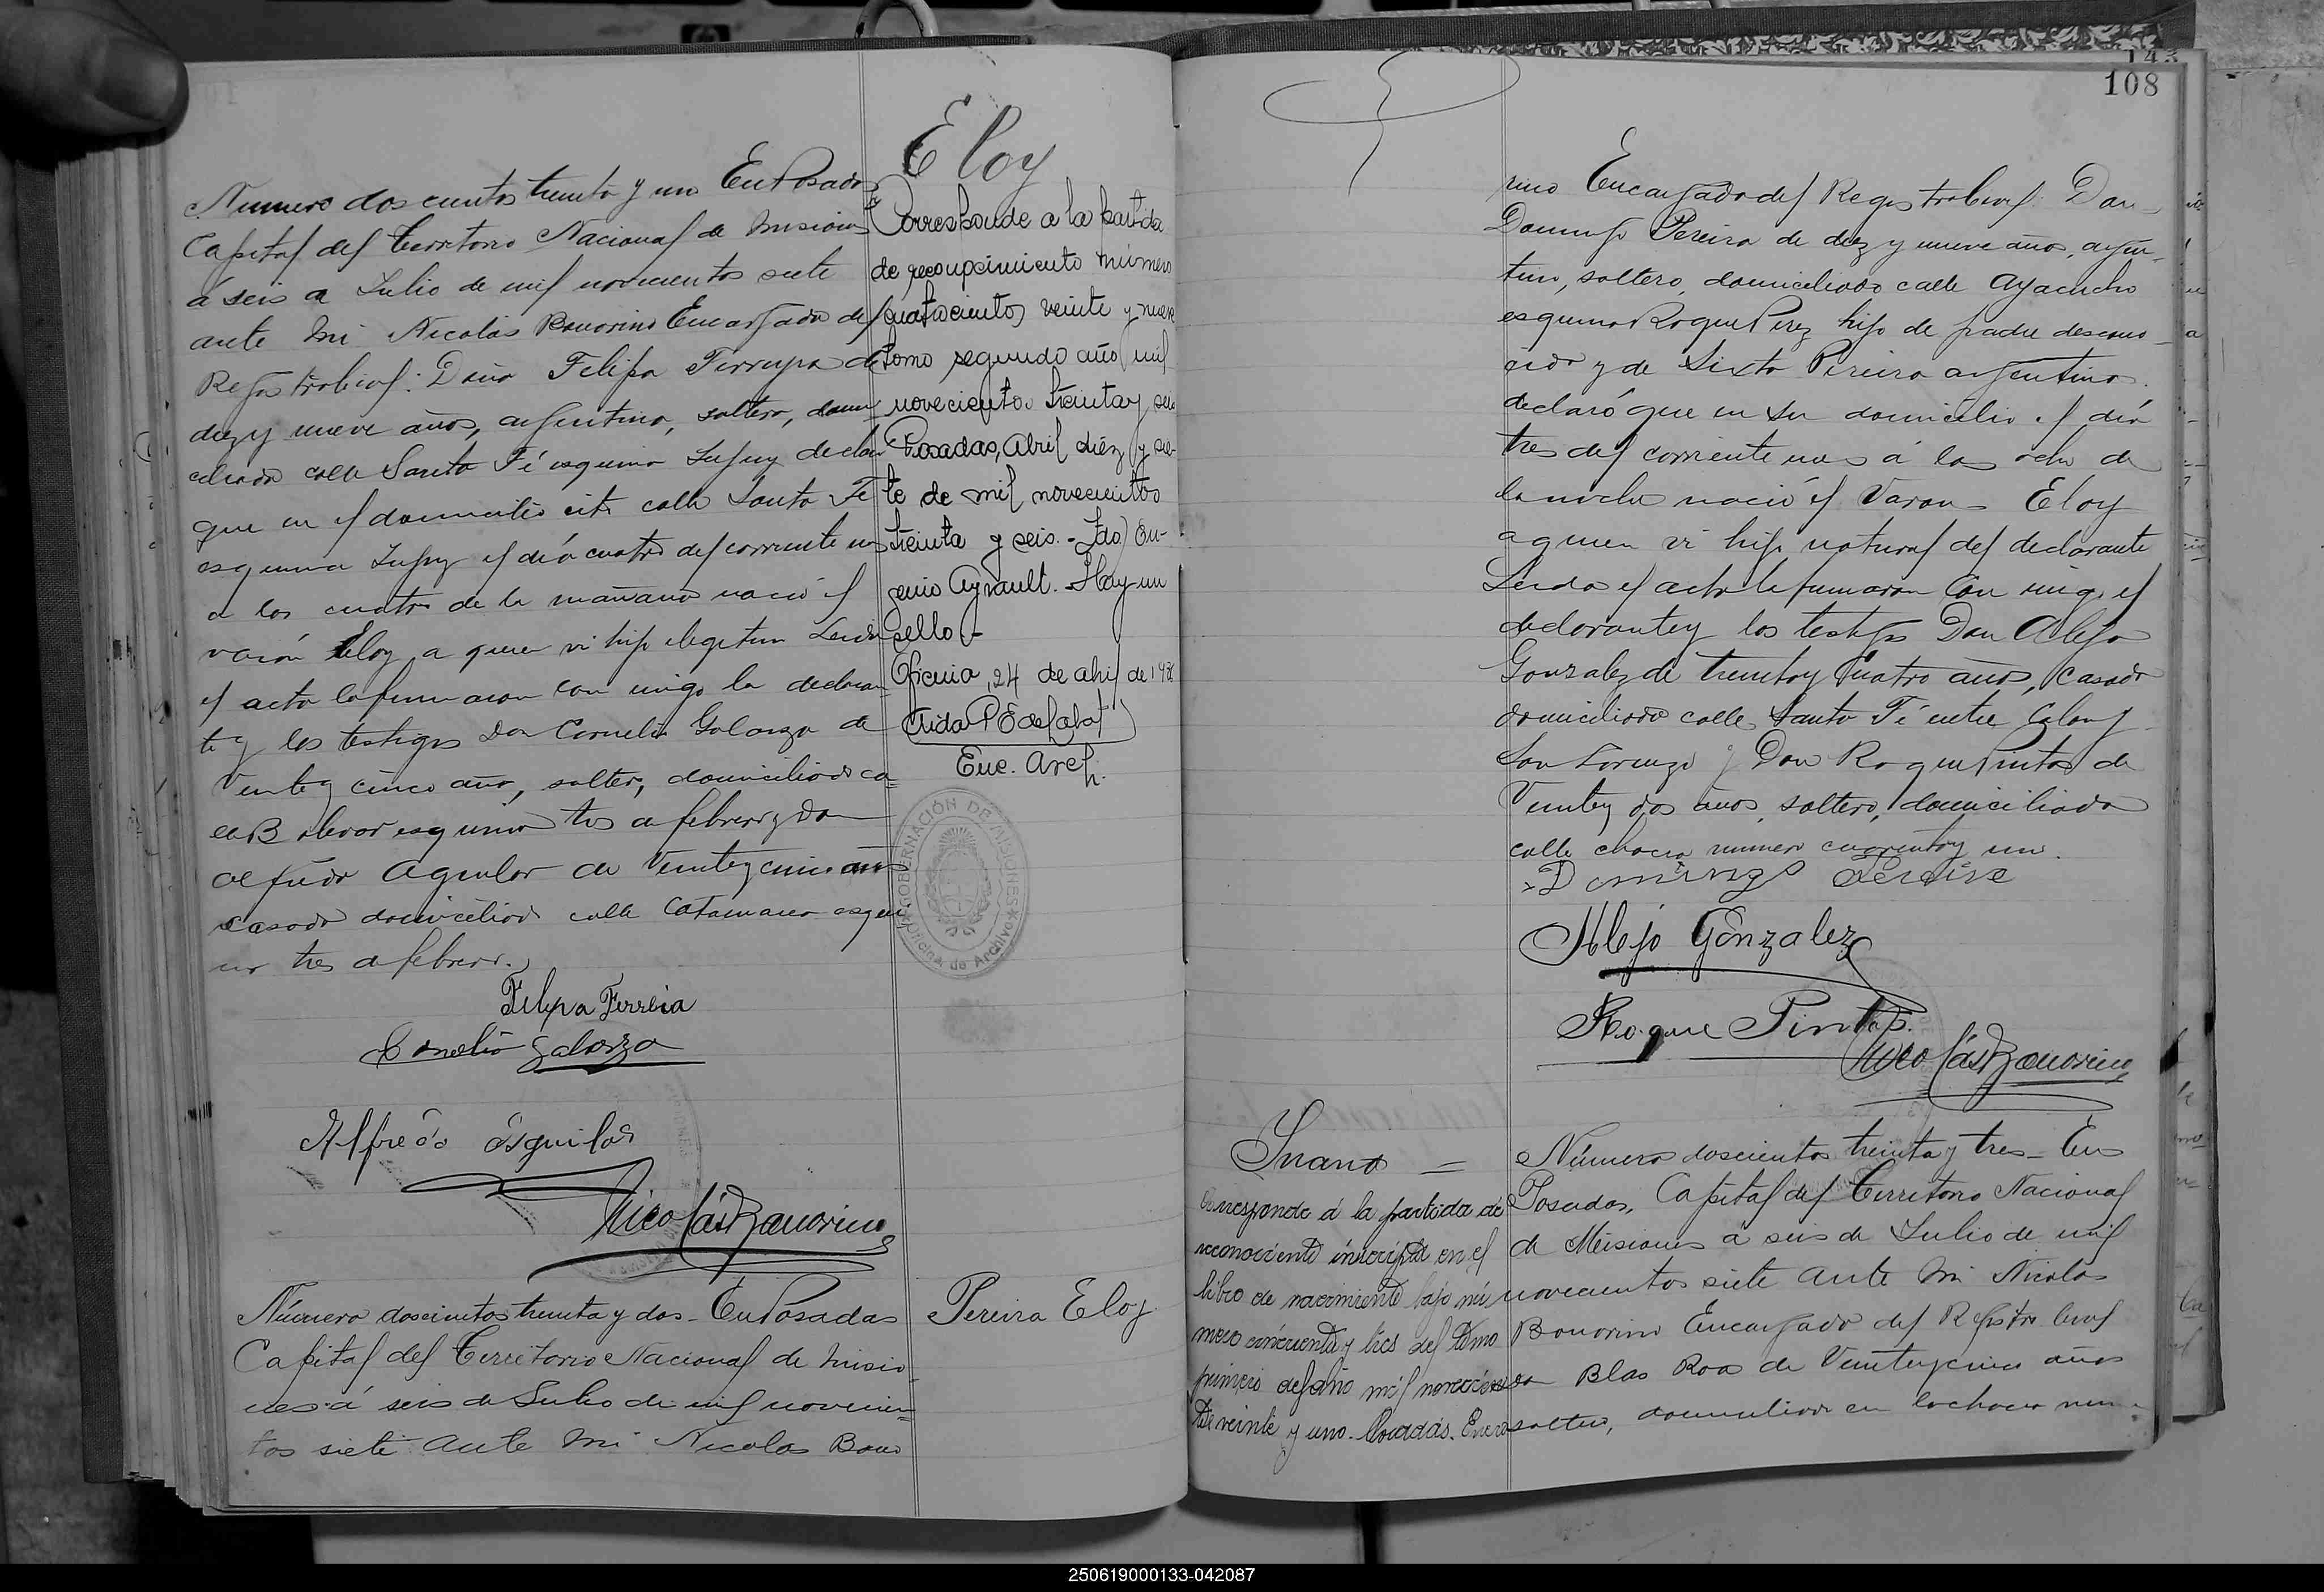 Eloy
Numero doscientos treinta y uno En Posadas
Capital del Territorio Nacional de Misiones
á seis de Julio de mil novecientos siete
ante mi Nicolás Bonorino Encargado del
Registro Civil: Doña Felipa de
diez y nueve años, argentina, soltera, domi
ciliada calle Santa Fé esquina Jujuy declaró
que en el domicilio sito calle Santa Fé
esquina Jujuy el día cuatro del corriente mes
a las cuatro de la mañana nació el
varón Eloy a quien vi hijo ilegitimo Leida
el acta la firmaron con migo la declaran
te y los testigos Don Cornelio Galarza de
Veinte y cinco años, soltero, domiciliado ca
lle Bolivar esquina tres de febrero y Don
Alfredo Aguilar de Veinte y cinco años
casado domiciliado calle Catamarca esqui
na tres de febrero.
Felipa Ferreia
Cornelio Galarza
Alfredo Aguilar
Nicolás Bonorino
Corresponde a la partida
de reconocimiento número
cuatrocientos veinte y nueve
tomo segundo año mil
novecientos treinta y seis
Posadas, Abril diez y sie-
te de mil novecientos
treinta y seis.- Fdo) Eu-
genio Ayrault. - Hay un
sello.-
Oficina, 24 de abril de 19
Aida P. E. de
Enc. Arch.
GOBERNACIÓN DE MISIONES
Oficina de Archivo
Pereira Eloy
Número doscientos treinta y dos - En Posadas
Capital del Territorio Nacional de Misio
nes á seis de Julio de mil novecien
tos siete ante mi Nicolas Bono
108
rino Encargado del Registro Civil: Don
Domingo Pereira de diez y nueve años, argen
tino, soltero, domiciliado calle Ayacucho
esquina Roque Perez hijo de padre descono
cido y de Sixta Pereira argentina.
declaró que en su domicilio el día
tres del corriente mes á las ocho de
la noche nació el Varon - Eloy
a quien vi hijo natural del declarante
Leida el acta la firmaron con migo el
declarante y los testigos Don Alejo
Gonzalez de treinta y cuatro años, casado
domiciliado calle Santa Fé entre Colon y
San Lorenzo y Don Roque Pintos de
Veinte y dos años, soltero, domiciliado
calle chacra numero cuarenta y uno.
Domingo Pereira
Alejo Gonzalez
Roque Pintos.
Nicolás Bonorino
Juana =
Corresponde á la partida de
reconociento inscripta en el
libro de nacimiento bajo nú
mero cincuenta y tres del tomo
primero del año mil novecien
tos veinte y uno. Posadas. Enero
Número doscientos treinta y tres - En
Posadas, Capital del Territorio Nacional
de Misiones á seis de Julio de mil
novecientos siete ante mi Nicolas
Bonorino Encargado del Registro Civil
Don Blas Roa de Veinte y cinco años
soltero, domiciliado en la chacra num
250619000133-042087